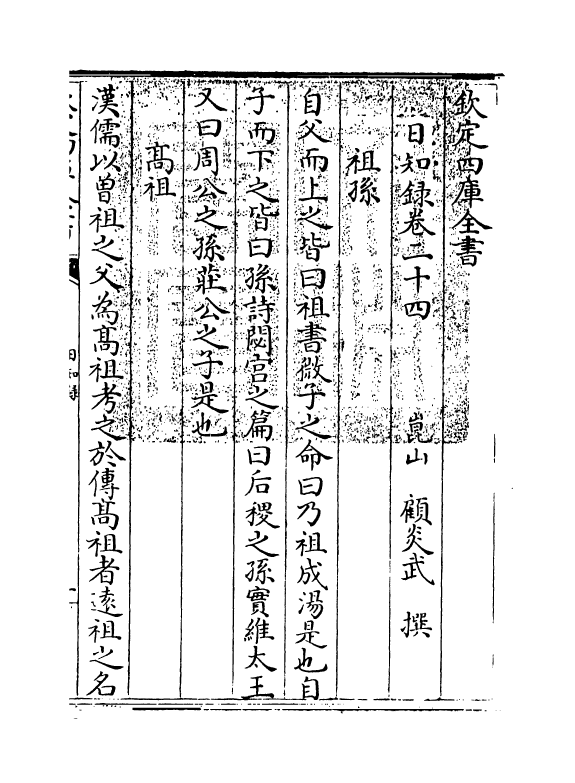 欽定四庫全書
日知録卷二十四
崑山　顧炎武　撰
祖孫
自父而上之皆曰祖書微子之命曰乃祖成湯是也自
子而下之皆曰孫詩閟宫之篇曰后稷之孫實維太王
又曰周公之孫莊公之子是也
髙祖
漢儒以曾祖之父為髙祖考之於傳髙祖者遠祖之名
日知録